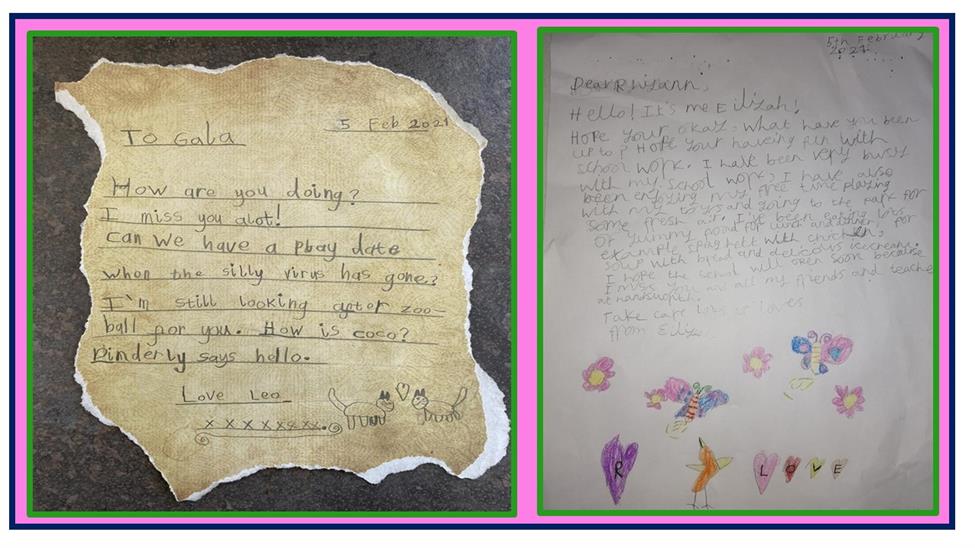 5 Feb 2021
To Gala
How are you doing?
I miss you alot!
can we have a play date
when the silly virus has gone?
I'm still looking after zoo-
ball for you. How is coco?
Dinderly says hello.
Love Leo
x x x x x x x x.
5th February
2021
Dear Rwizann,
Hello! It's me Eilizah!
HOPE your okay. What have you been
up to? HOPE your haveing fun with
school work. I have been very busy
with my school work, I have also
been enjoying my free time playing
with my toys and going to the park for
some fresh air. I've been eating lots
of yummy food for lunch and dinner, for
example spaghetti with chicken,
soup with bread and delicious icecream.
I hope the school will open soon because
I miss you and all my friends and teacher
at handsworth.
Take care lots of loves
from
R
L O V E